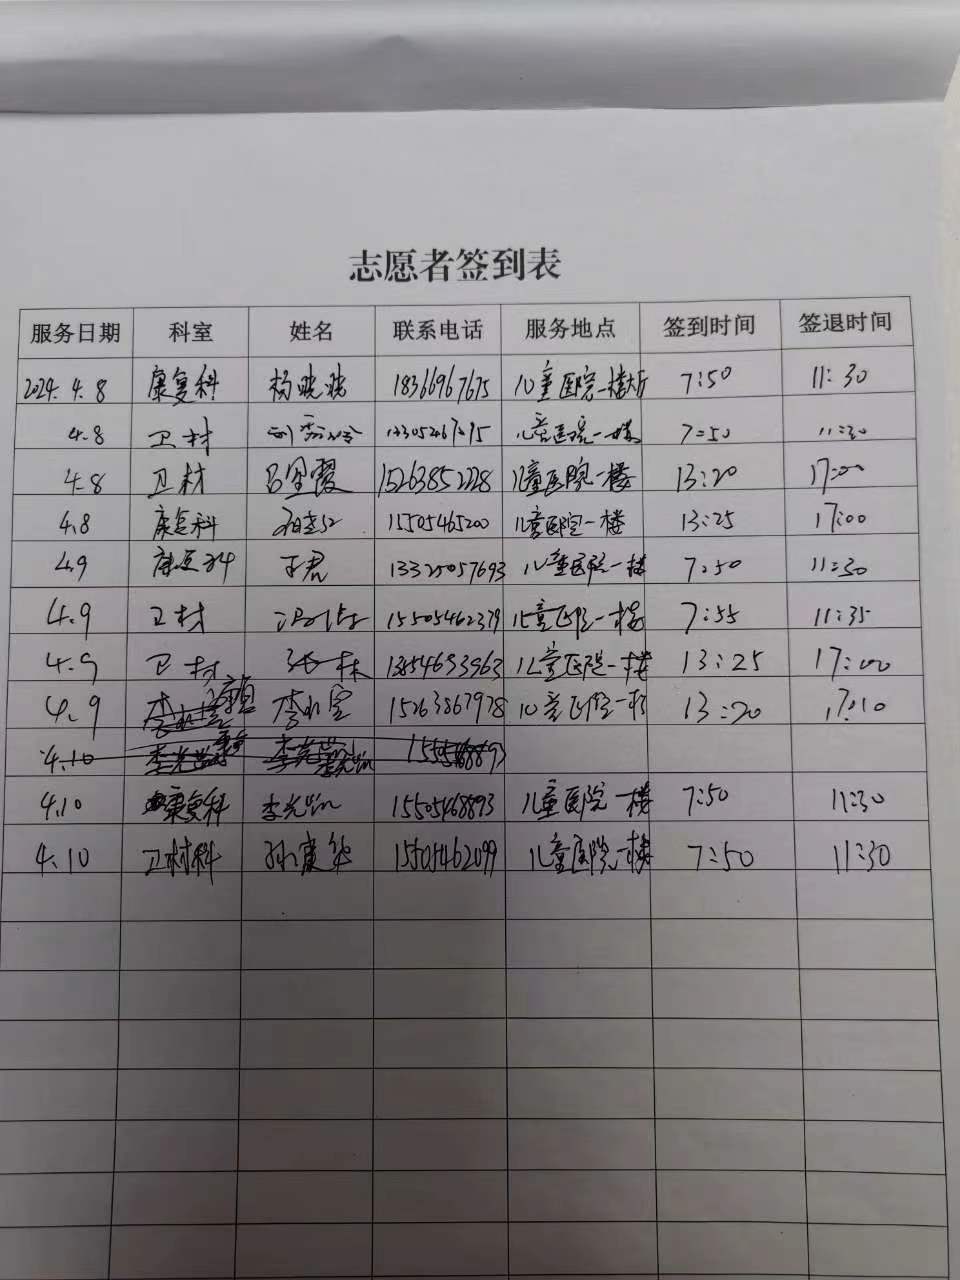 志愿者签到表
服务日期 科室 姓名 联系电话 服务地点 签到时间 签退时间
2024.4.8 康复科 杨晓晓 18366967675 儿童医院一楼大厅 7:50 11:30
4.8 卫材 儿童医院一楼 7:50 11:30
4.8 卫材 吕金霞 15263852228 儿童医院一楼 13:20 17:00
4.8 康复科 15505465200 儿童医院一楼 13:25 17:00
4.9 康复科 王君 13325057693 儿童医院一楼 7:50 11:30
4.9 卫材 15505462379 儿童医院一楼 7:55 11:35
4.9 卫材 张林 13854693963 儿童医院一楼 13:25 17:00
4.9 15263867978 儿童医院一楼 13:20 17:10
4.10
4.10 康复科 15505468893 儿童医院一楼 7:50 11:30
4.10 卫材科 孙庆华 15505462099 儿童医院一楼 7:50 11:30